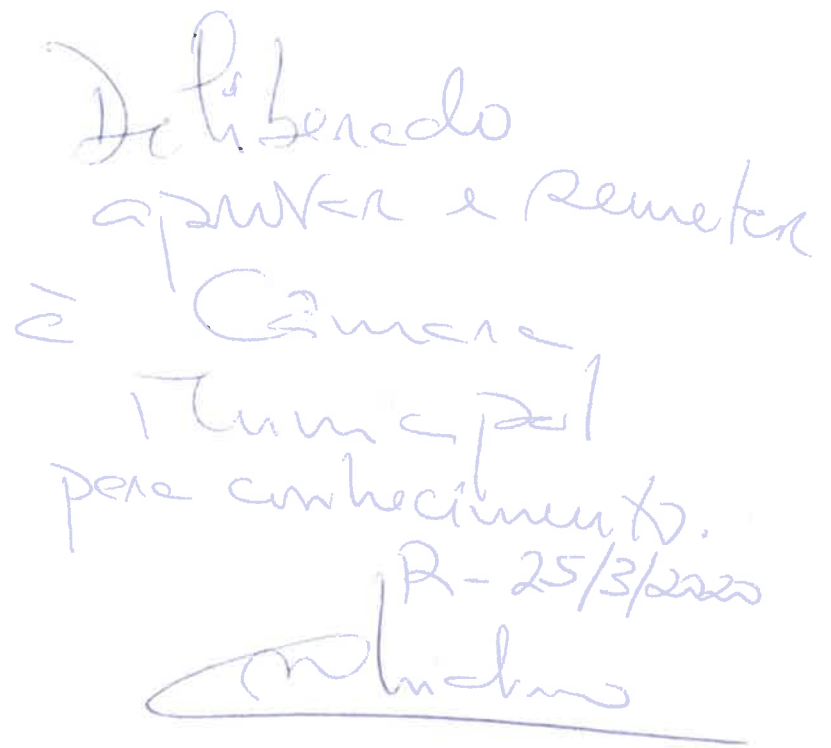 Deliberado
aprovar e remeter
à Câmara
Municipal
para conhecimento.
R - 25/3/2020